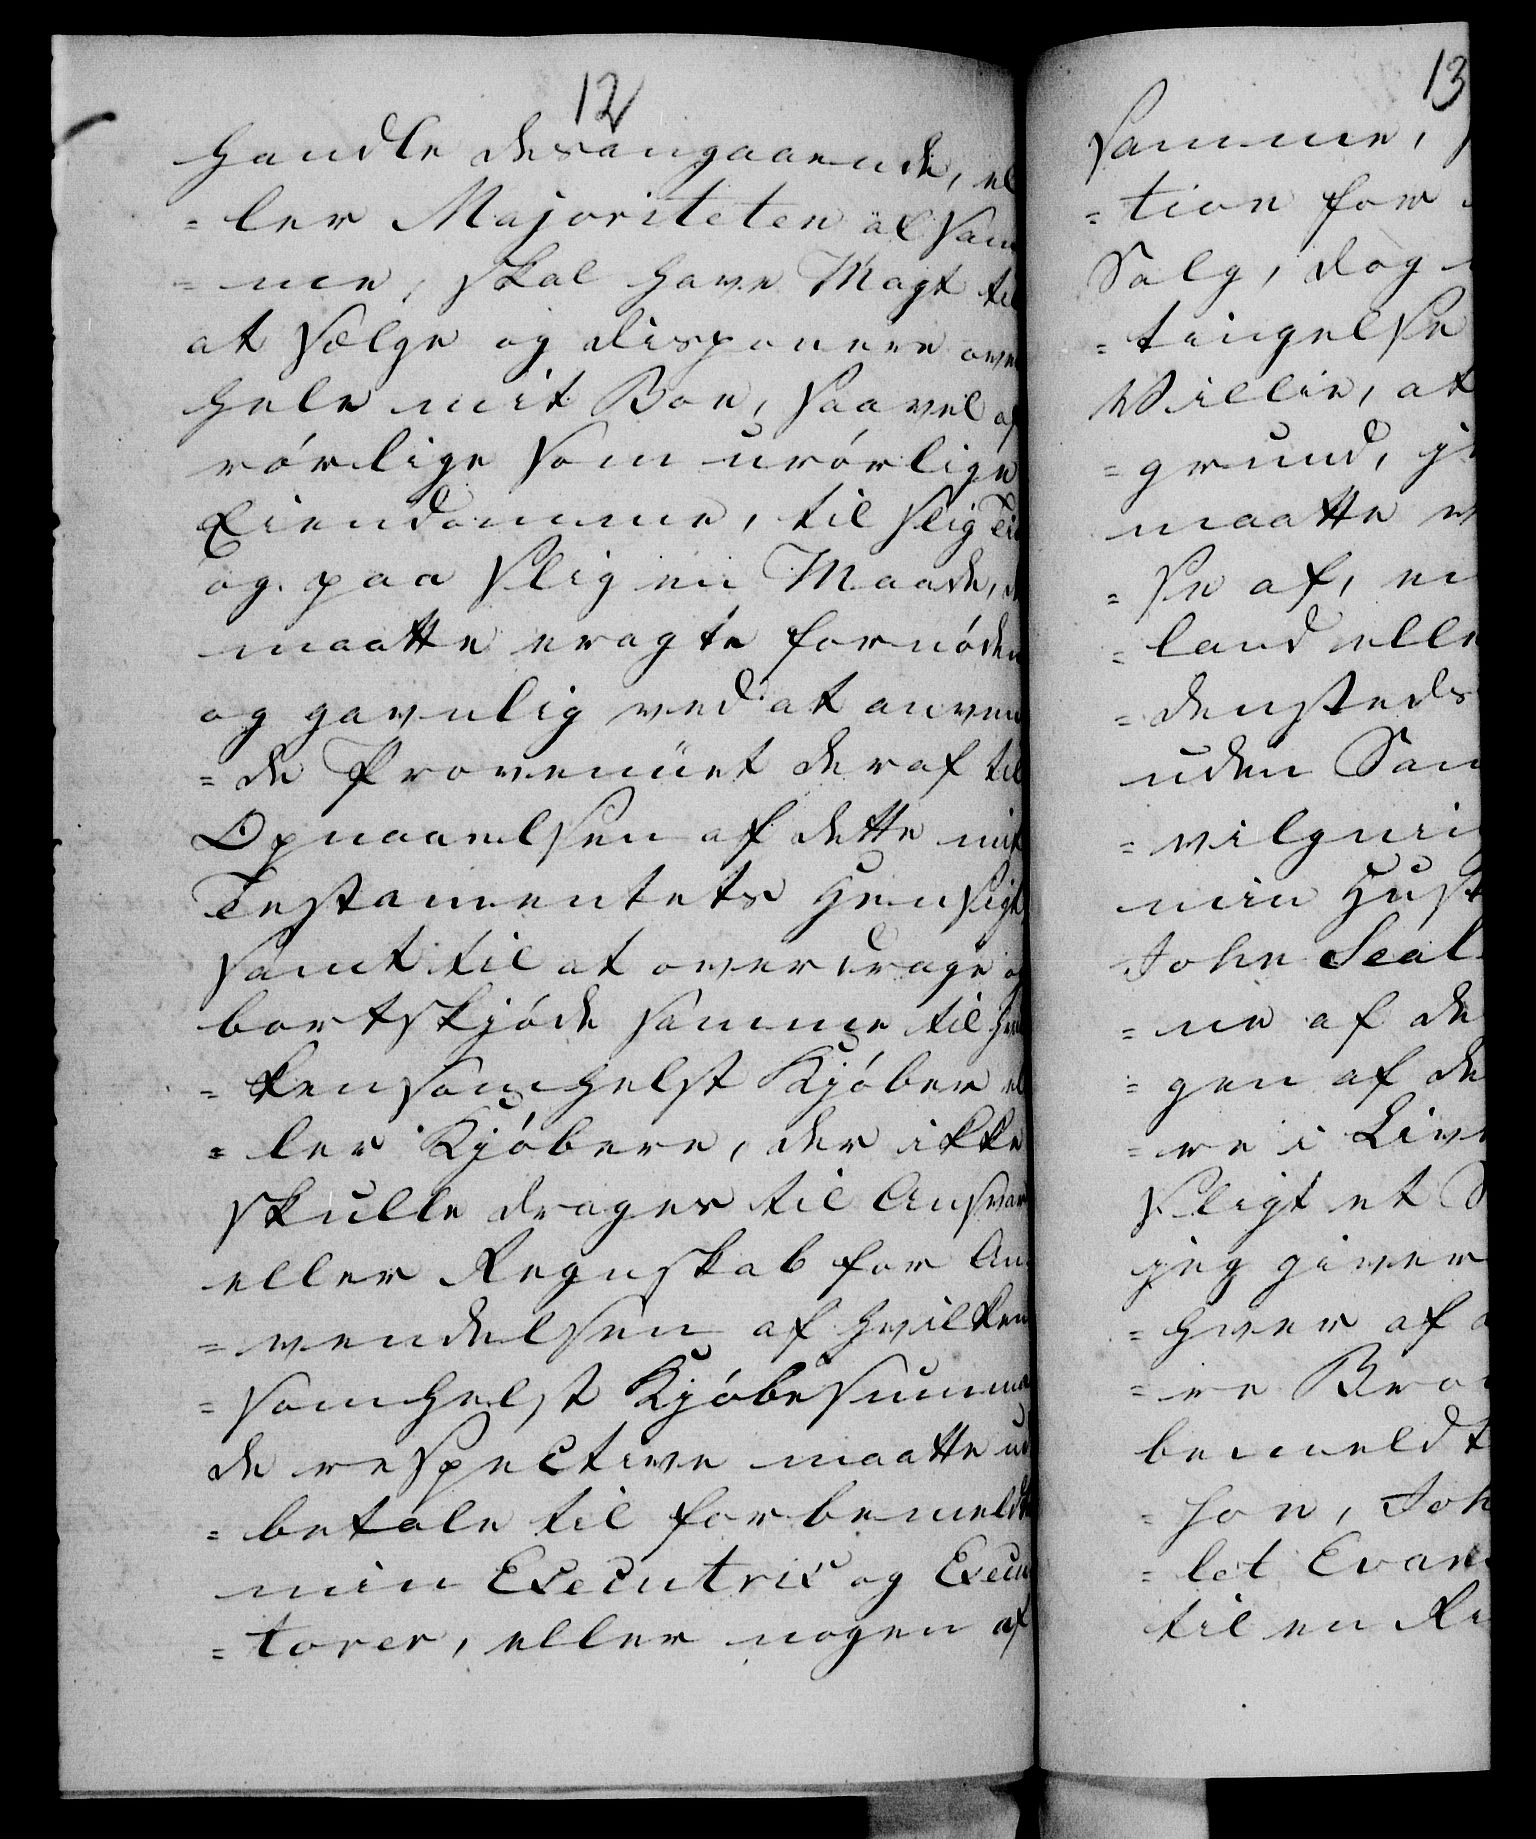 12
handle desangaaende, el
= ler Majoriteten af sam
= me, skal have Magt til
at sælge og disponere over
hele mit Boe, saavel af
rörlige som urörlige
Eiendomme, til slig Tid
og paa slig en Maade, de
maatte eragte fornöden
og gavnlig ved at anven
= de Provenüet deraf til
Opnaaelsen af dette mit
Testamentets Hensigt,
samt til at overdrage og
bortskjöde samme til hvil
= kensomhelst Kjöber el
= ler Kjöbere, der ikke
skulle drages til Ansvar
eller Regnskab for An
= vendelsen af hvilken
= somhelst Kjöbesumma
de respective maatte ud
= betale til forbemeldte
min Executrix og Execu
= torer, eller nogen af
13
samme,
= tion for
Salg, dog
= tingelse
Willie, at
= grund,
maatte
= se af, en
= land elle
= densteds
uden Sam
= vilgnin
min Hust
John Seal
= ne af de
= gen af de
= re i Live
sligt et
jeg giver
= hver af
= re Bro
bemeldt
= son, Joh
= let Evan
til en